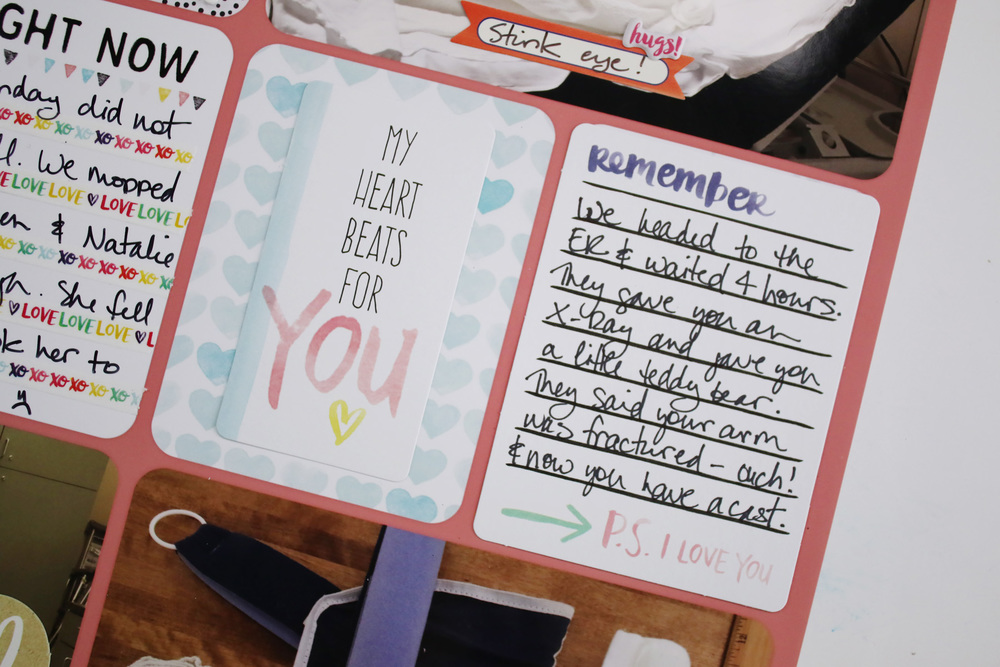 Stink eye!
hugs!
GHT NOW
day did not
xo xo xo xo xo xo xo xo xo
We mopped
LOVE LOVE LOVE LOVE
& Natalie
xo xo xo xo xo xo xo xo
She fell
LOVE LOVE LOVE
her to
xo xo xo xo xo xo
MY
HEART
BEATS
FOR
YOU
Remember
We headed to the
ER & waited 4 hours.
They gave you an
X-Ray and gave you
a little teddy bear.
They said your arm
was fractured - ouch!
& now you have a cast.
P.S. I LOVE YOU